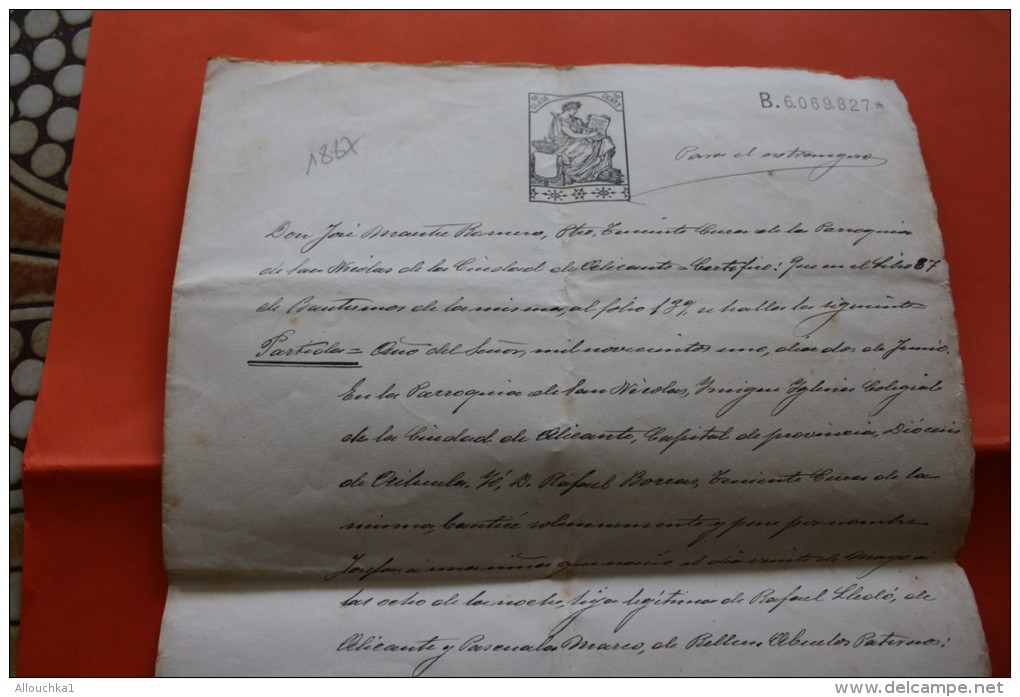 B.6.069.827*
1887
Para el extrangero
Don José Mautre Romero, Pbro, Teniente Cura de la Parroquia
de San Nicolas de la Ciudad de Alicante = Certifico: Que en el Libro 87
de Bautismos de la misma, al fólio 139, se halla la siguiente
Partida = Año del Señor, mil novecientos uno, dia dos de Junio.
En la Parroquia de San Nicolas, Insigne Iglesia Colegial
de la Ciudad de Alicante, Capital de provincia, Diócesis
de Orihuela. Yó, D. Rafael Borras, Teniente Cura de la
misma, bauticé solemnemente y puse por nombre
Josefa, a una niña que nació el dia veinte de Mayo á
las ocho de la noche, hija legítima de Rafael Lledó, de
Alicante y Pascuala Marco, de Relleu. Abuelos Paternos:
Allouchka1
www.delcampe.net